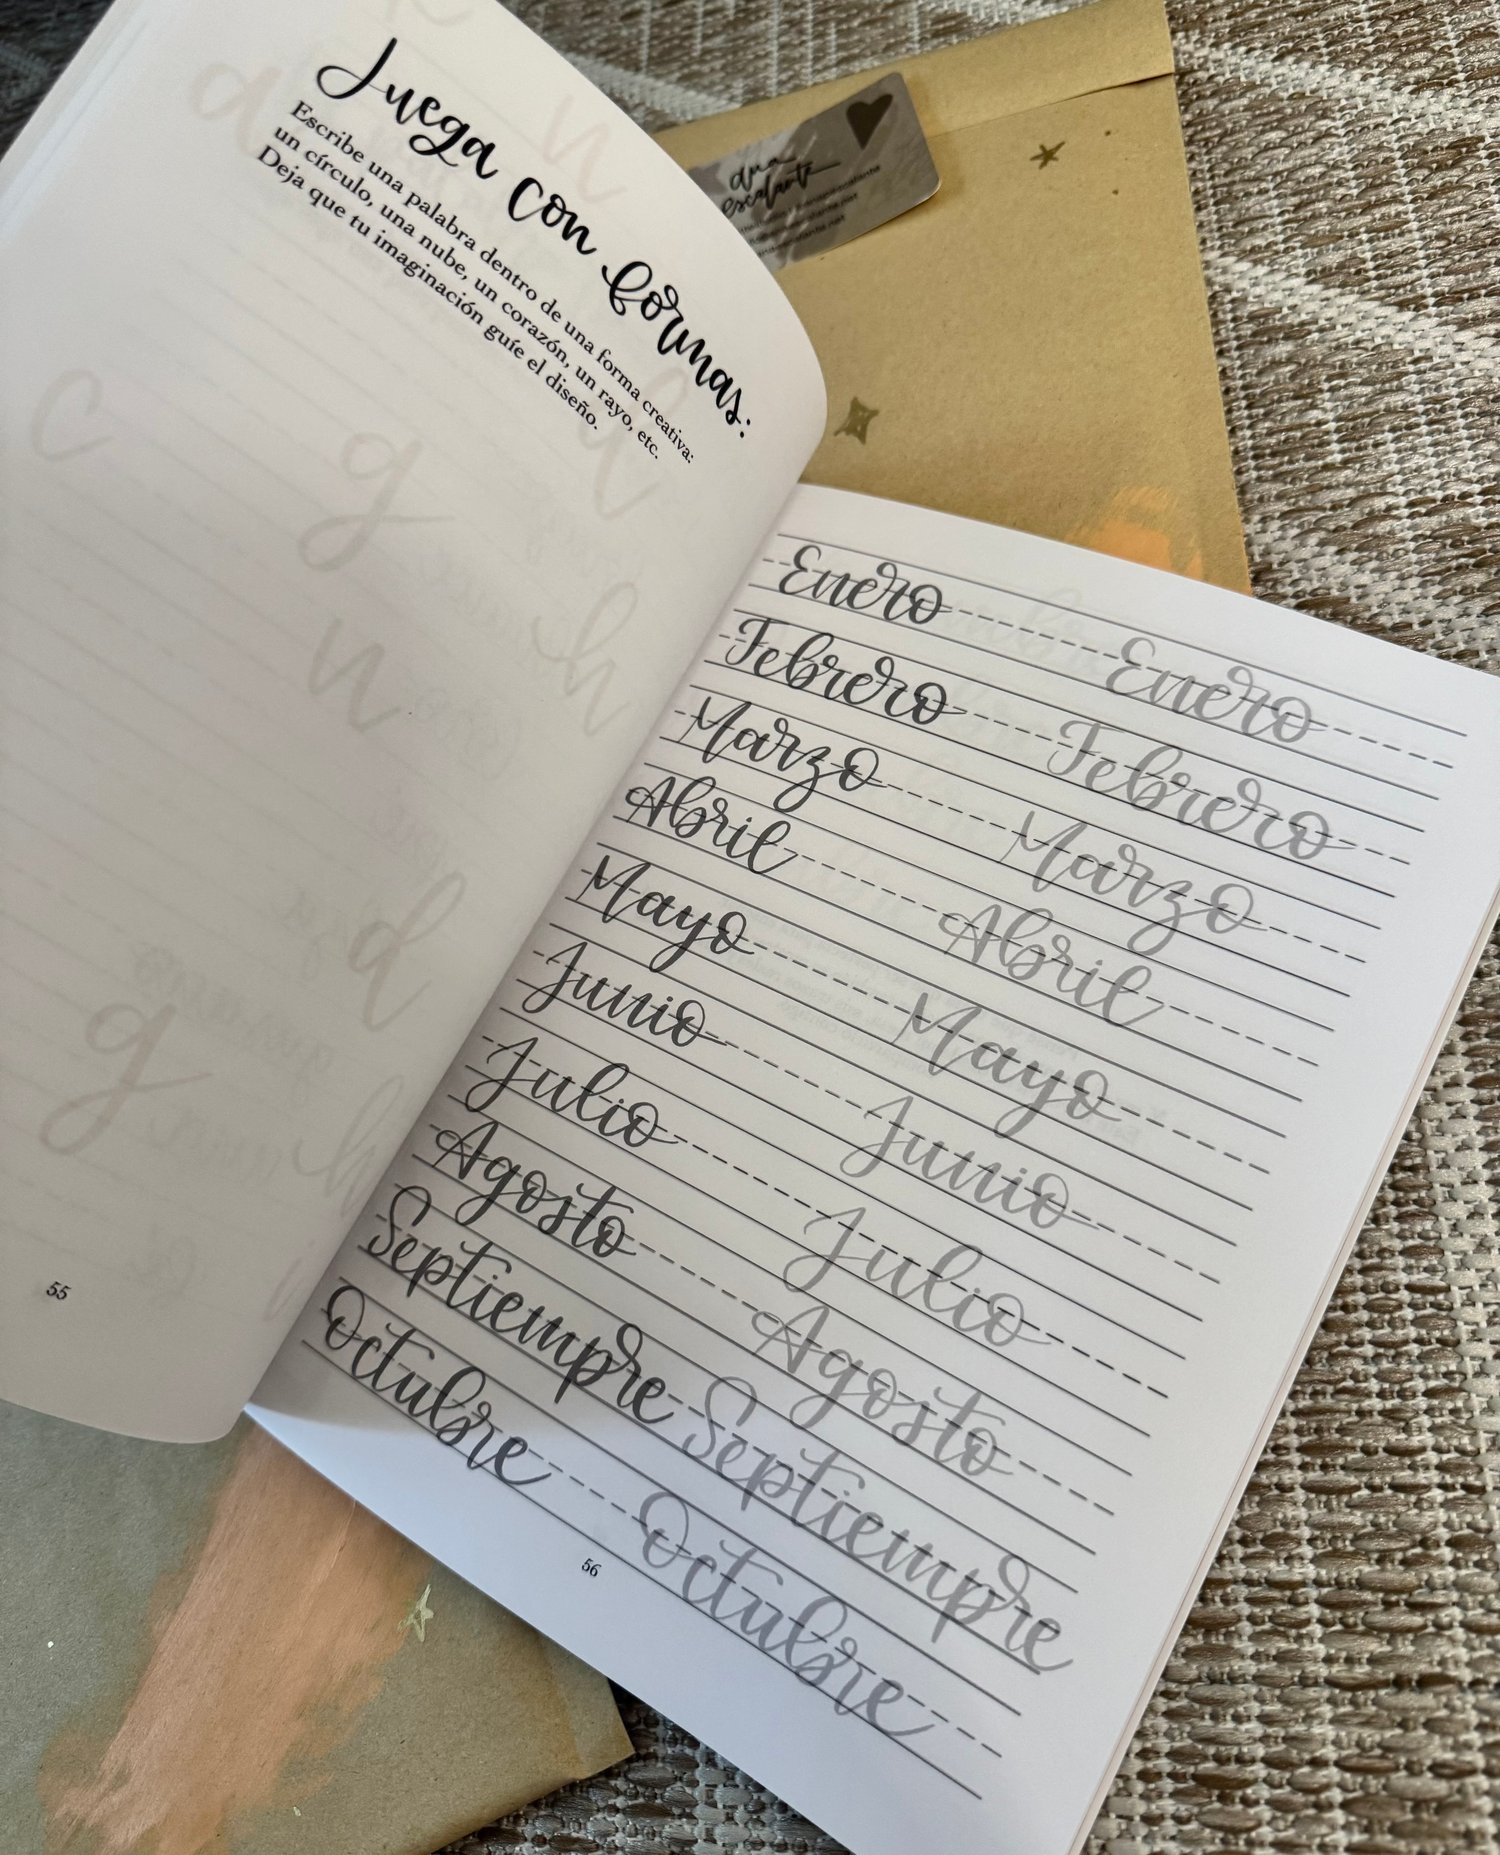 Juega con formas:
Escribe una palabra dentro de una forma creativa:
un círculo, una nube, un corazón, un rayo, etc.
Deja que tu imaginación guíe el diseño.
55
ana
escalante
Enero Enero
Febrero Febrero
Marzo Marzo
Abril Abril
Mayo Mayo
Junio Junio
Julio Julio
Agosto Agosto
Septiempre Septiempre
Octubre Octubre
56